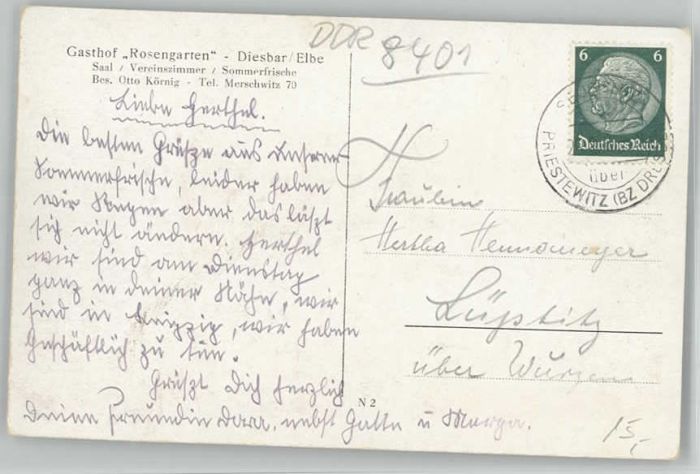 DDR 8401
Gasthof „Rosengarten" - Diesbar/Elbe
Saal / Vereinszimmer / Sommerfrische
Bes. Otto Körnig - Tel. Merschwitz 79
Liebe Herthel.
Die besten Grüße aus unserer
Sommerfrische, leider haben
wir Regen aber das läßt
sich nicht ändern. Herthel
wir sind am Dienstag
ganz in deiner Nähe, wir
sind in Leipzig, wir haben
Geschäftlich zu tun.
Grüßt Dich herzlich
Deine Freundin Dora, nebst Gatte u
6 6
Deutsches Reich
über
PRIESTEWITZ (BZ DRESD
Fräulein
Hertha
Lüptitz
über Wurzen
N 2
15,-